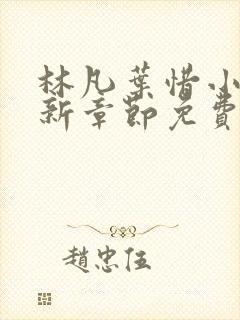 林凡葉惜小
新章節免費
趙忠伍